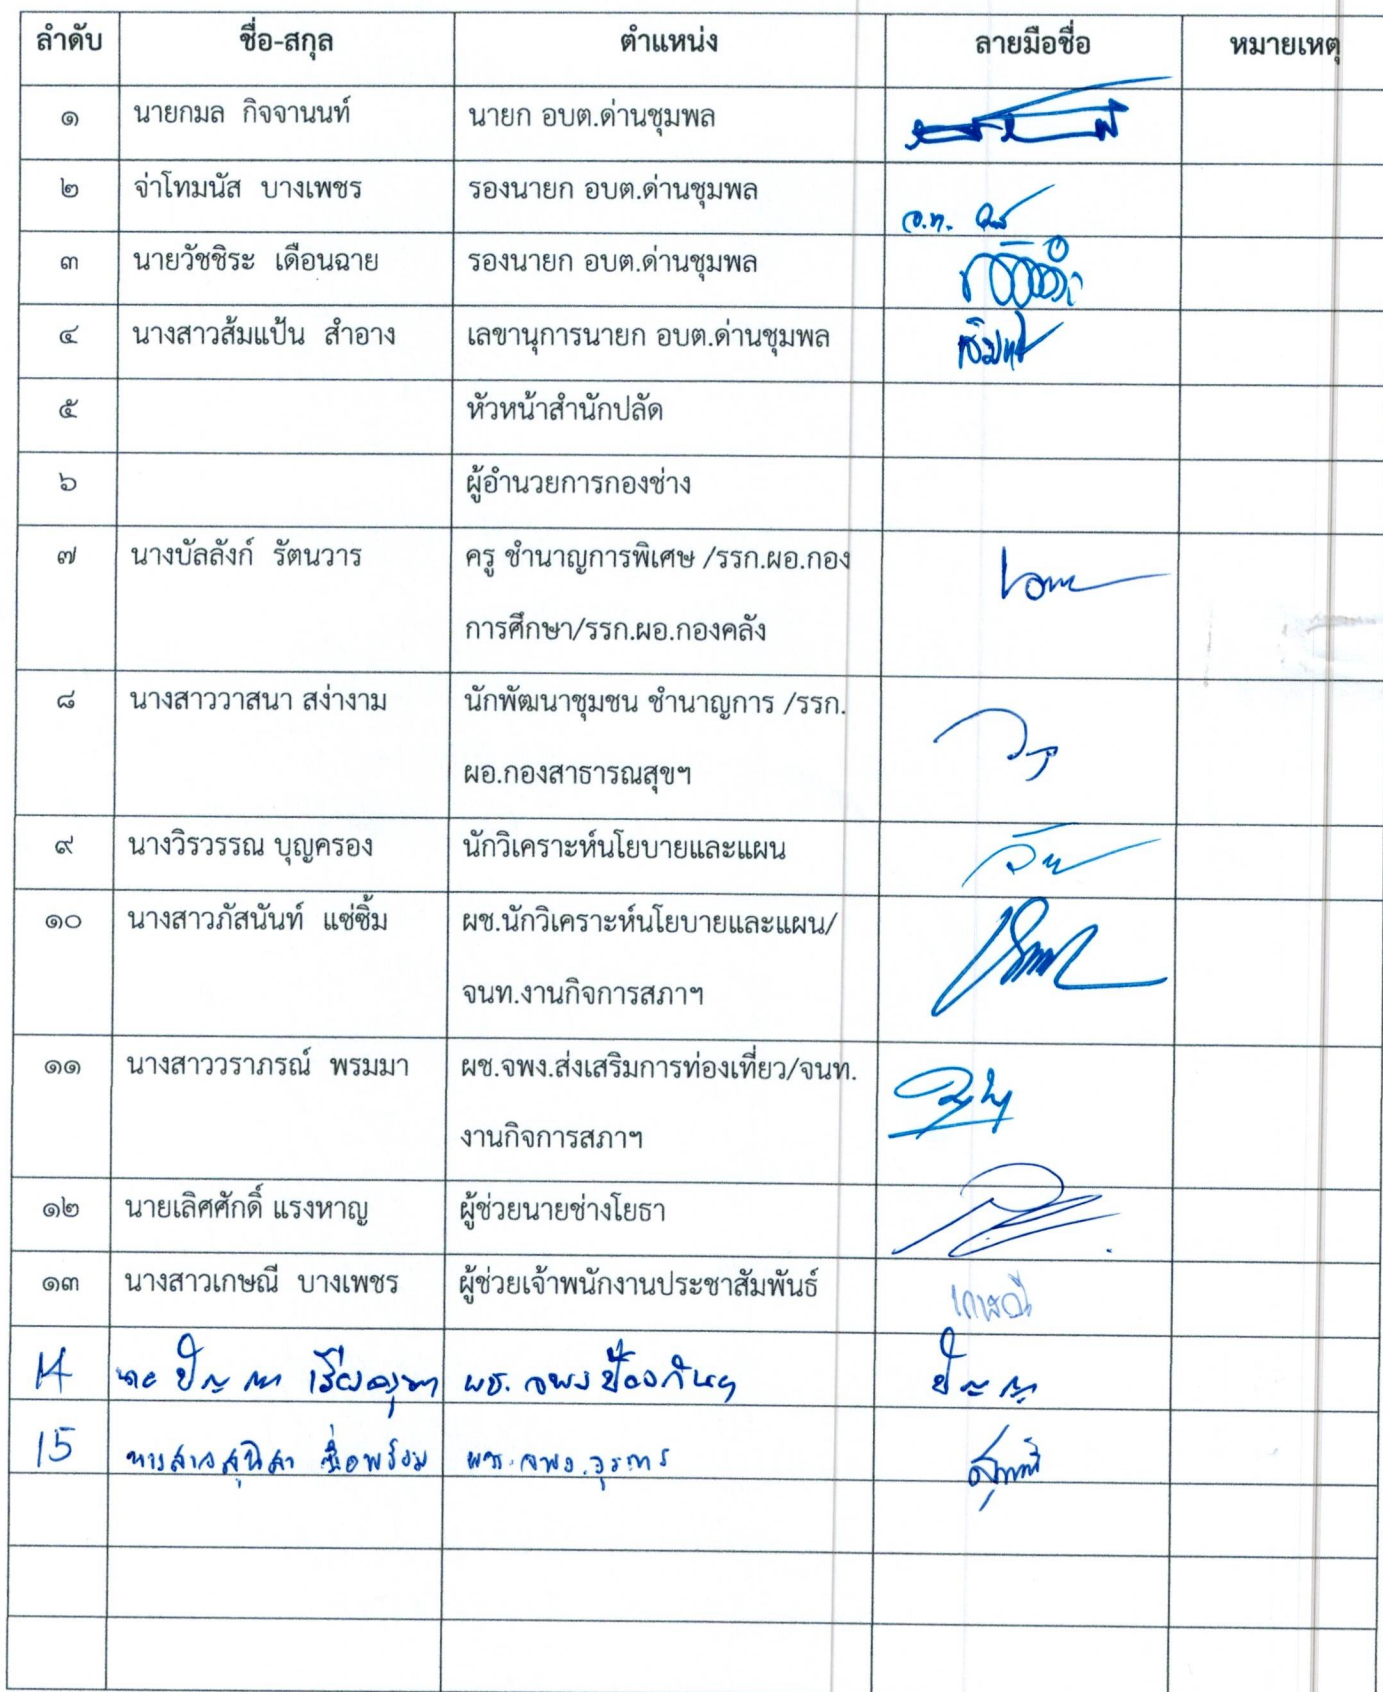 ลำดับ ชื่อ-สกุล ตำแหน่ง ลายมือชื่อ หมายเหตุ
๑ นายกมล กิจจานนท์ นายก อบต.ด่านชุมพล
๒ จ่าโทมนัส บางเพชร รองนายก อบต.ด่านชุมพล
จ.ท.
๓ นายวัชชิระ เดือนฉาย รองนายก อบต.ด่านชุมพล
๔ นางสาวส้มแป้น สำอาง เลขานุการนายก อบต.ด่านชุมพล
๕ หัวหน้าสำนักปลัด
๖ ผู้อำนวยการกองช่าง
๗ นางบัลลังก์ รัตนวาร ครู ชำนาญการพิเศษ /รรก.ผอ.กอง
การศึกษา/รรก.ผอ.กองคลัง
๘ นางสาววาสนา สง่างาม นักพัฒนาชุมชน ชำนาญการ /รรก.
ผอ.กองสาธารณสุขฯ
๙ นางวิรวรรณ บุญครอง นักวิเคราะห์นโยบายและแผน
๑๐ นางสาวภัสนันท์ แซ่ซิ้ม ผช.นักวิเคราะห์นโยบายและแผน/
จนท.งานกิจการสภาฯ
๑๑ นางสาววราภรณ์ พรมมา ผช.จพง.ส่งเสริมการท่องเที่ยว/จนท.
งานกิจการสภาฯ
๑๒ นายเลิศศักดิ์ แรงหาญ ผู้ช่วยนายช่างโยธา
๑๓ นางสาวเกษณี บางเพชร ผู้ช่วยเจ้าพนักงานประชาสัมพันธ์ เกษณี
14 ปัญญา ผช. จพง ป้องกันฯ ปัญญา
15 นางสาวสุนิสา ซื่อพร้อม ผช. จพง. ธุรการ